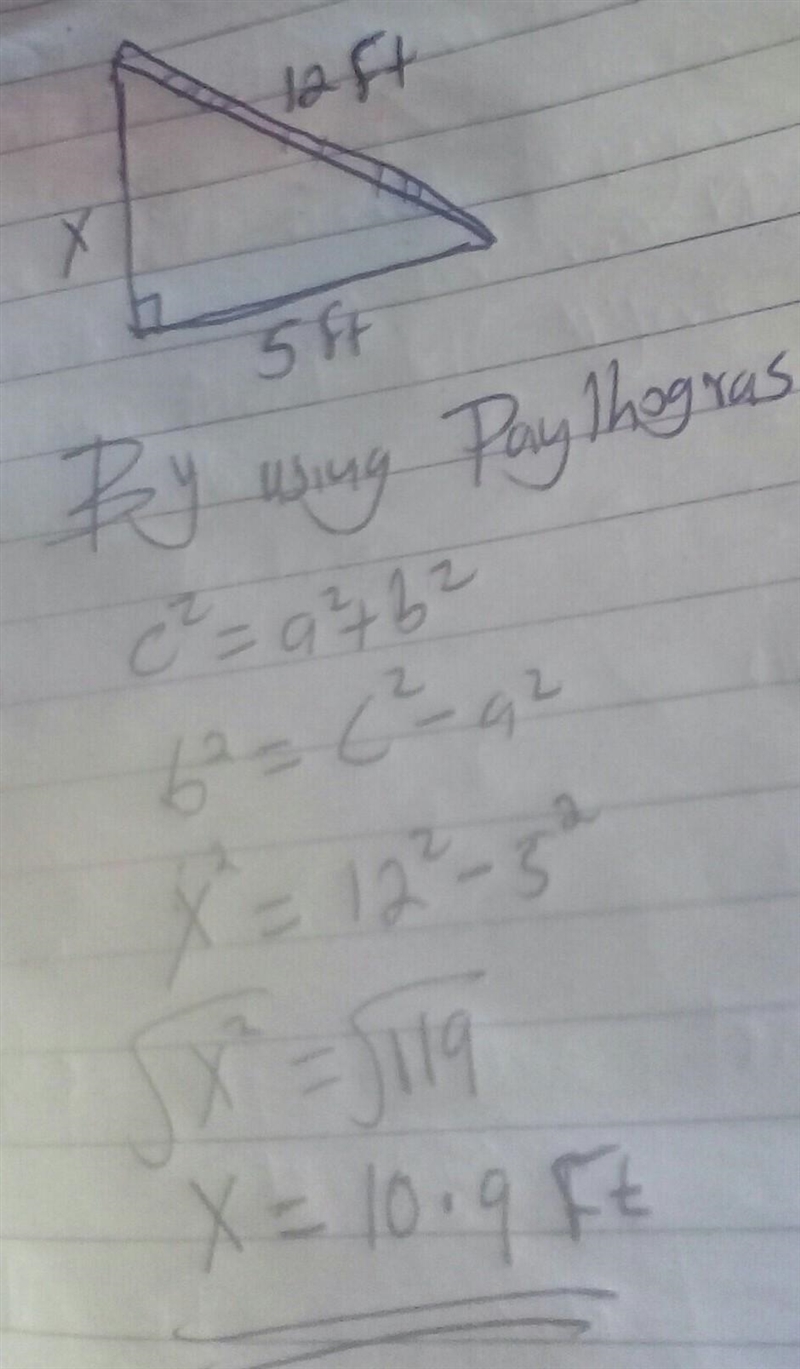 12 ft
x
5 ft
By using Paylhogras
c² = a² + b²
b² = c² - a²
x² = 12² - 5²
√x² = √119
x = 10.9 Ft